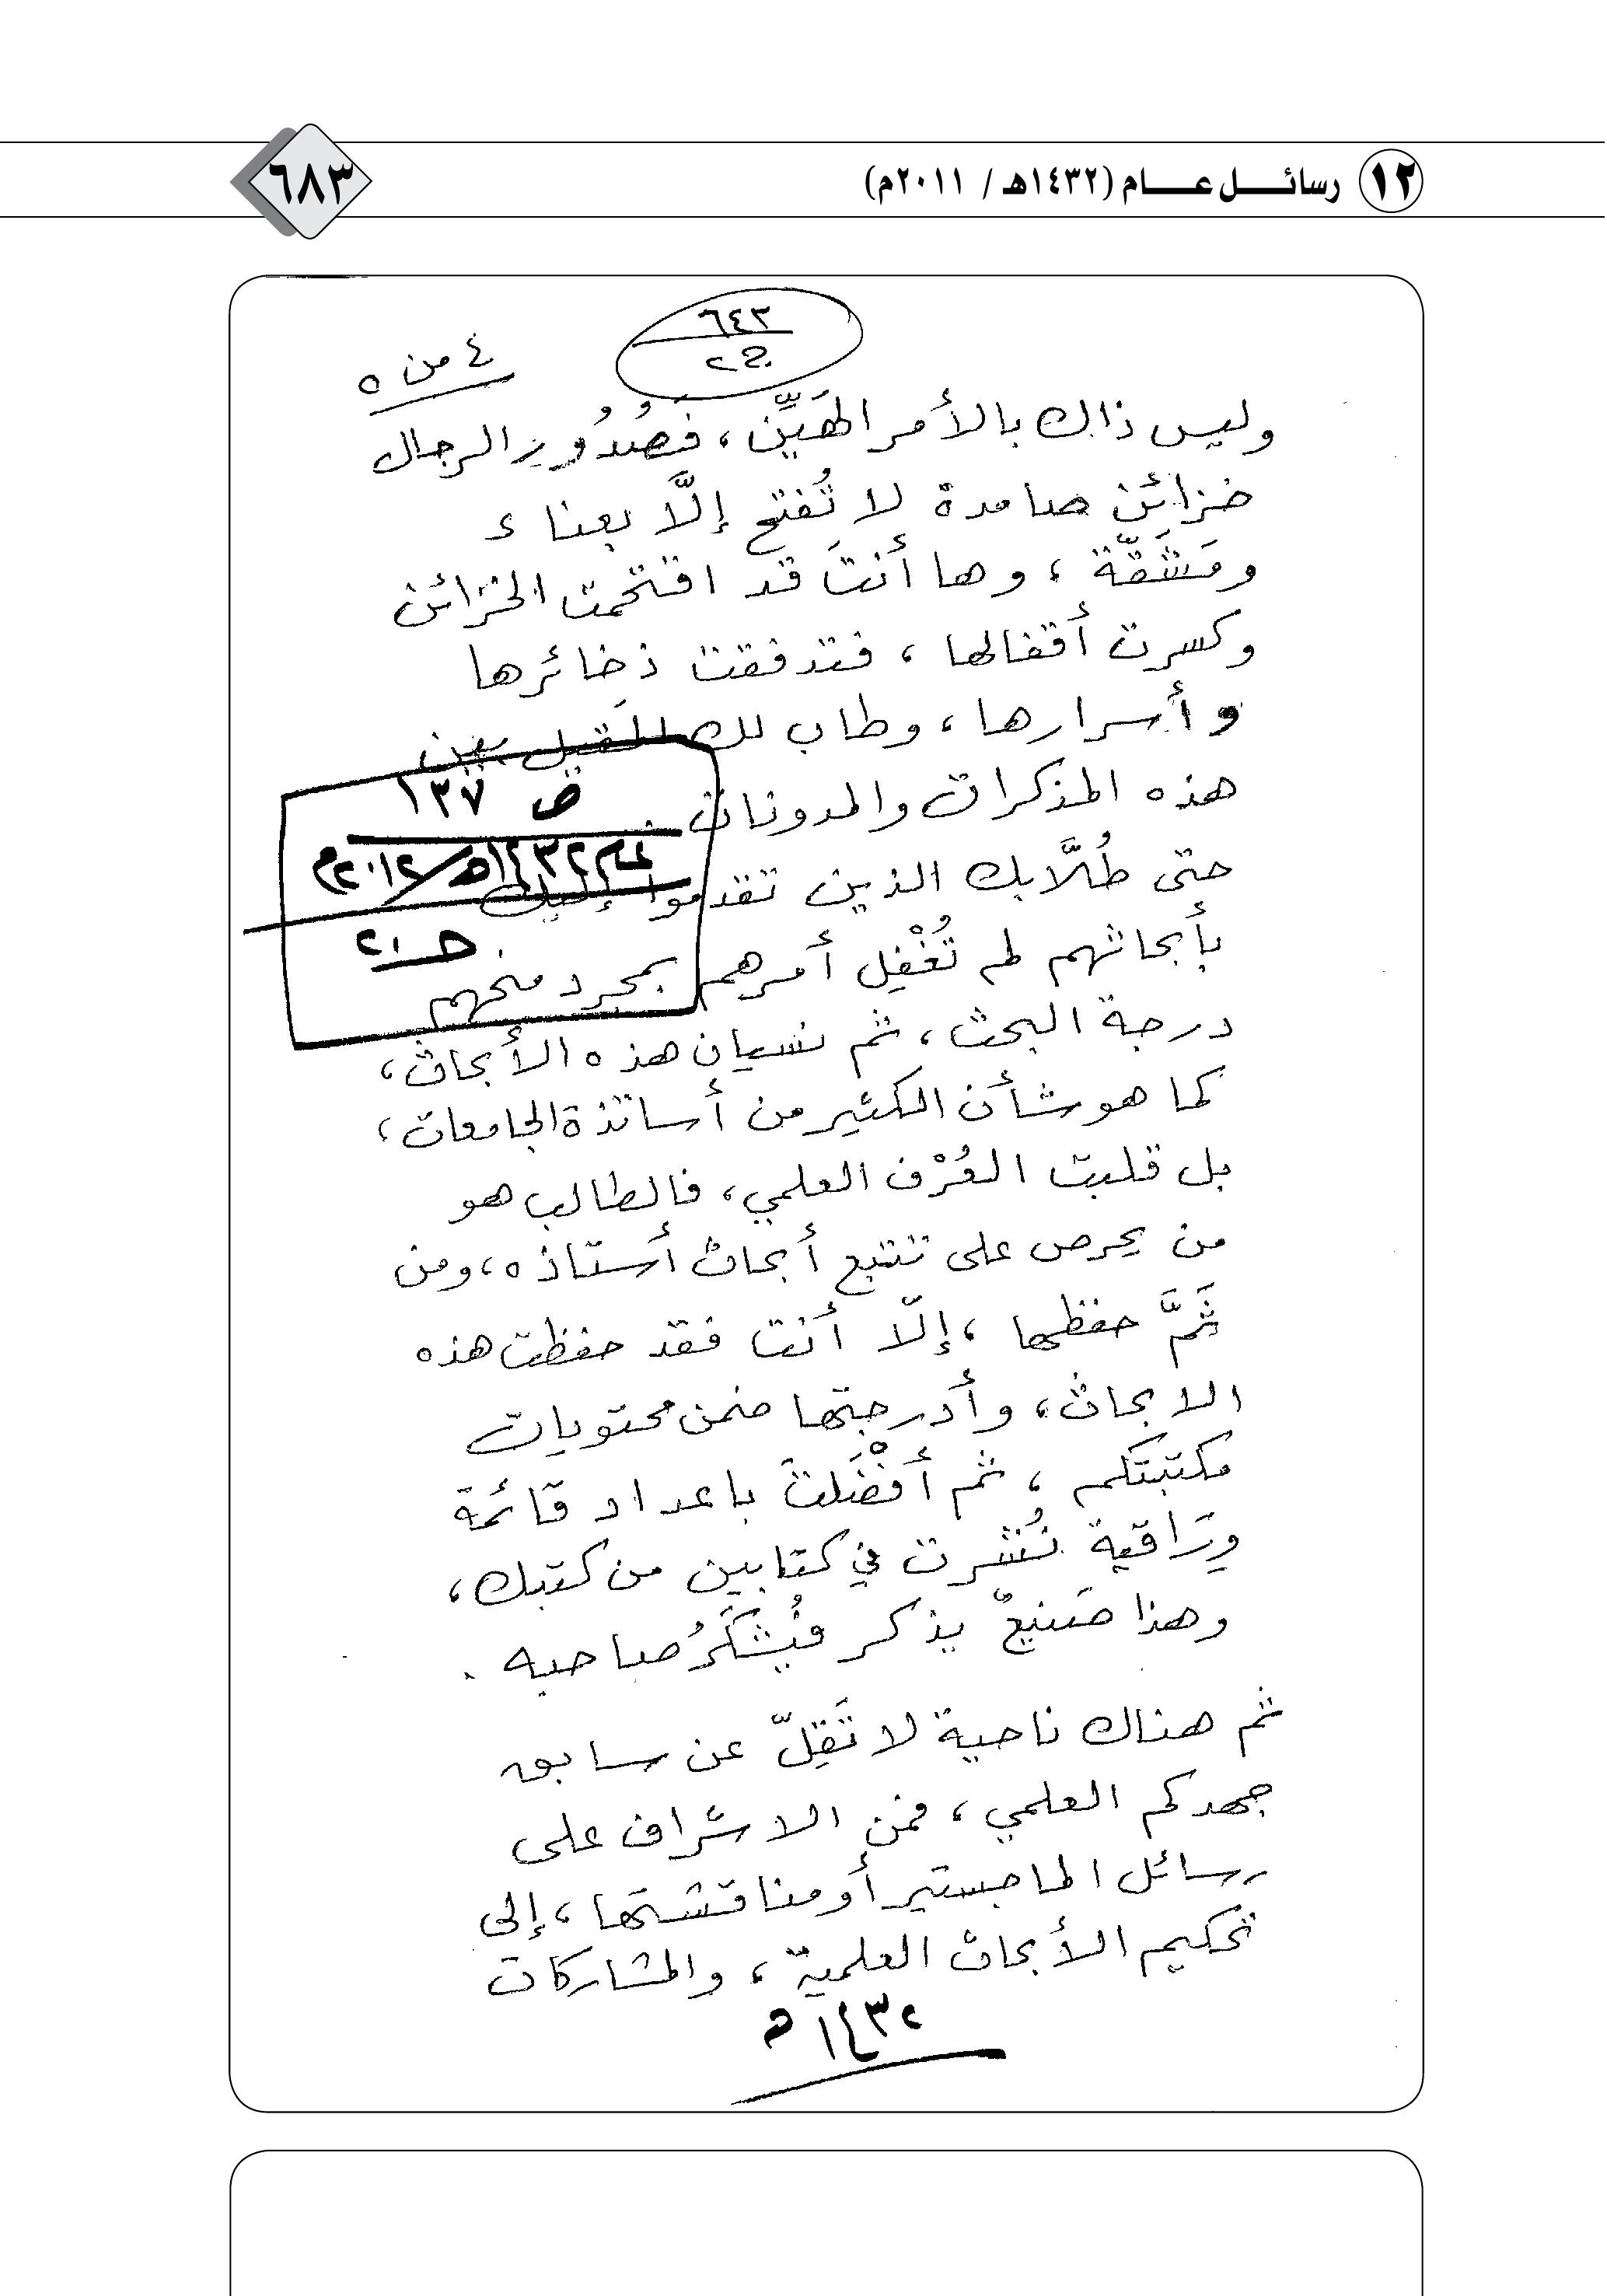 ١٢ رسائل عام (١٤٣٢هـ / ٢٠١١م)
٦٨٣
٦٤٣
ج٢
٤ من ٥
وليس ذاك بالأمر الهَيِّن، فصُدُور الرجال
خزائن صامدة لا تُفتح إلَّا بعناء
ومَشَقَّة، وها أنتَ قد اقتحمت الخزائن
وكسرت أقفالها، فتدفقت ذخائرها
وأسرارها، وطاب لك المَقيل بين
هذه المذكرات والمدونات.
ص ١٣٧
عام ١٤٣٢هـ/٢٠١٢م
حتى طُلَّابك الذين تقدموا إليك
بأبحاثهم لم تُغْفِل أمرهم بمجرد منحهم
درجة البحث، ثم نسيان هذه الأبحاث،
كما هو شأن الكثير من أساتذة الجامعات،
بل قلبت العُرْف العلمي، فالطالب هو
من يحرص على تتبع أبحاث أستاذه، ومن
ثَمَّ حفظها، إلّا أنت فقد حفظت هذه
الابحاث، وأدرجتها ضمن محتويات
مكتبتكم، ثم أفْضَلتَ باعداد قائمة
وِرَاقية نُشرت في كتابين من كتبك،
وهذا صَنيعٌ يذكر فيُشكَرُ صاحبه.
ثم هناك ناحية لا تَقِلّ عن سابق
جهدكم العلمي، فمن الاشراف على
رسائل الماجستير أو مناقشتها، إلى
تحكيم الأبحاث العلمية، والمشاركات
١٤٣٢ه